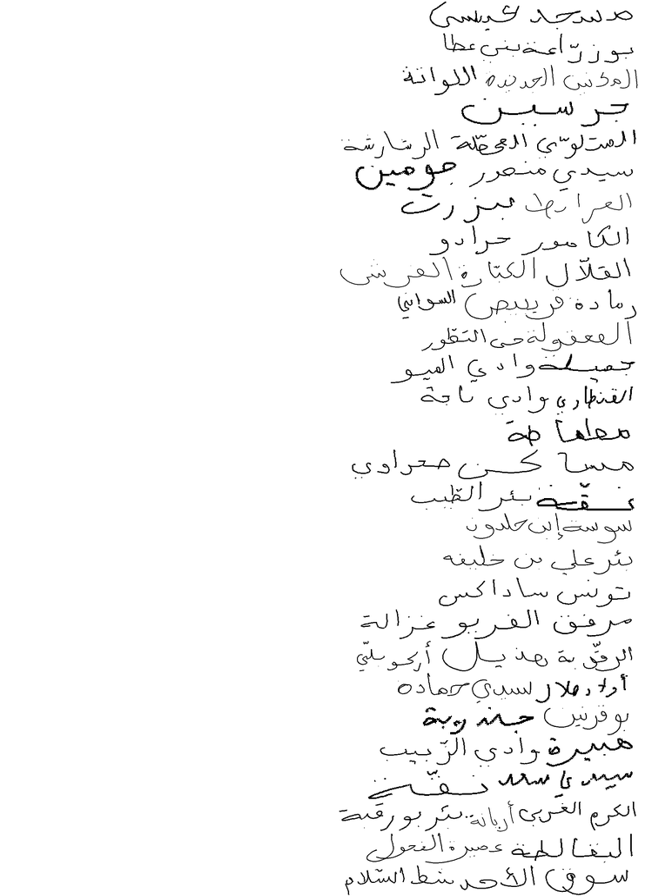 مسجد عيسى
بوزرّاعة بني عطا
المدنين الجديدة اللواتة
جرسين
المتلوّي المحطّة الرشارشة
سيدي منصور جومين
العرائط بنزرت
الكامور حزادو
القلاّل الكتّارة العرش
رمادة قربيص السواني
المعقولة حي التطور
جميلة وادي الميو
القنطاري وادي تاجة
مطماطة
مساكن صحراوي
نقّة بئر الطّيب
سوسة إبن خلدون
بئر علي بن خليفه
تونس ساداكس
مرفق الفربو غزالة
الرقّبة هذيل أركو بلّي
أولاد هلال لسيدي حمادة
بوقرنين جندوبة
هبيرة وادي الزّبيب
سيدي سعد نقّة
الكرم الغربي أريانة بئر بورقبة
البقالطة عميرة الفحول
سوق الأحد شط السّلام